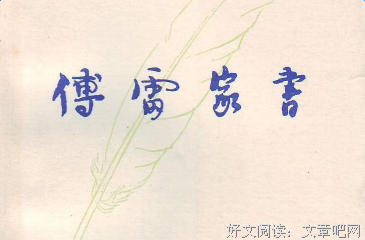 傅雷家書
好文阅读：文章吧网